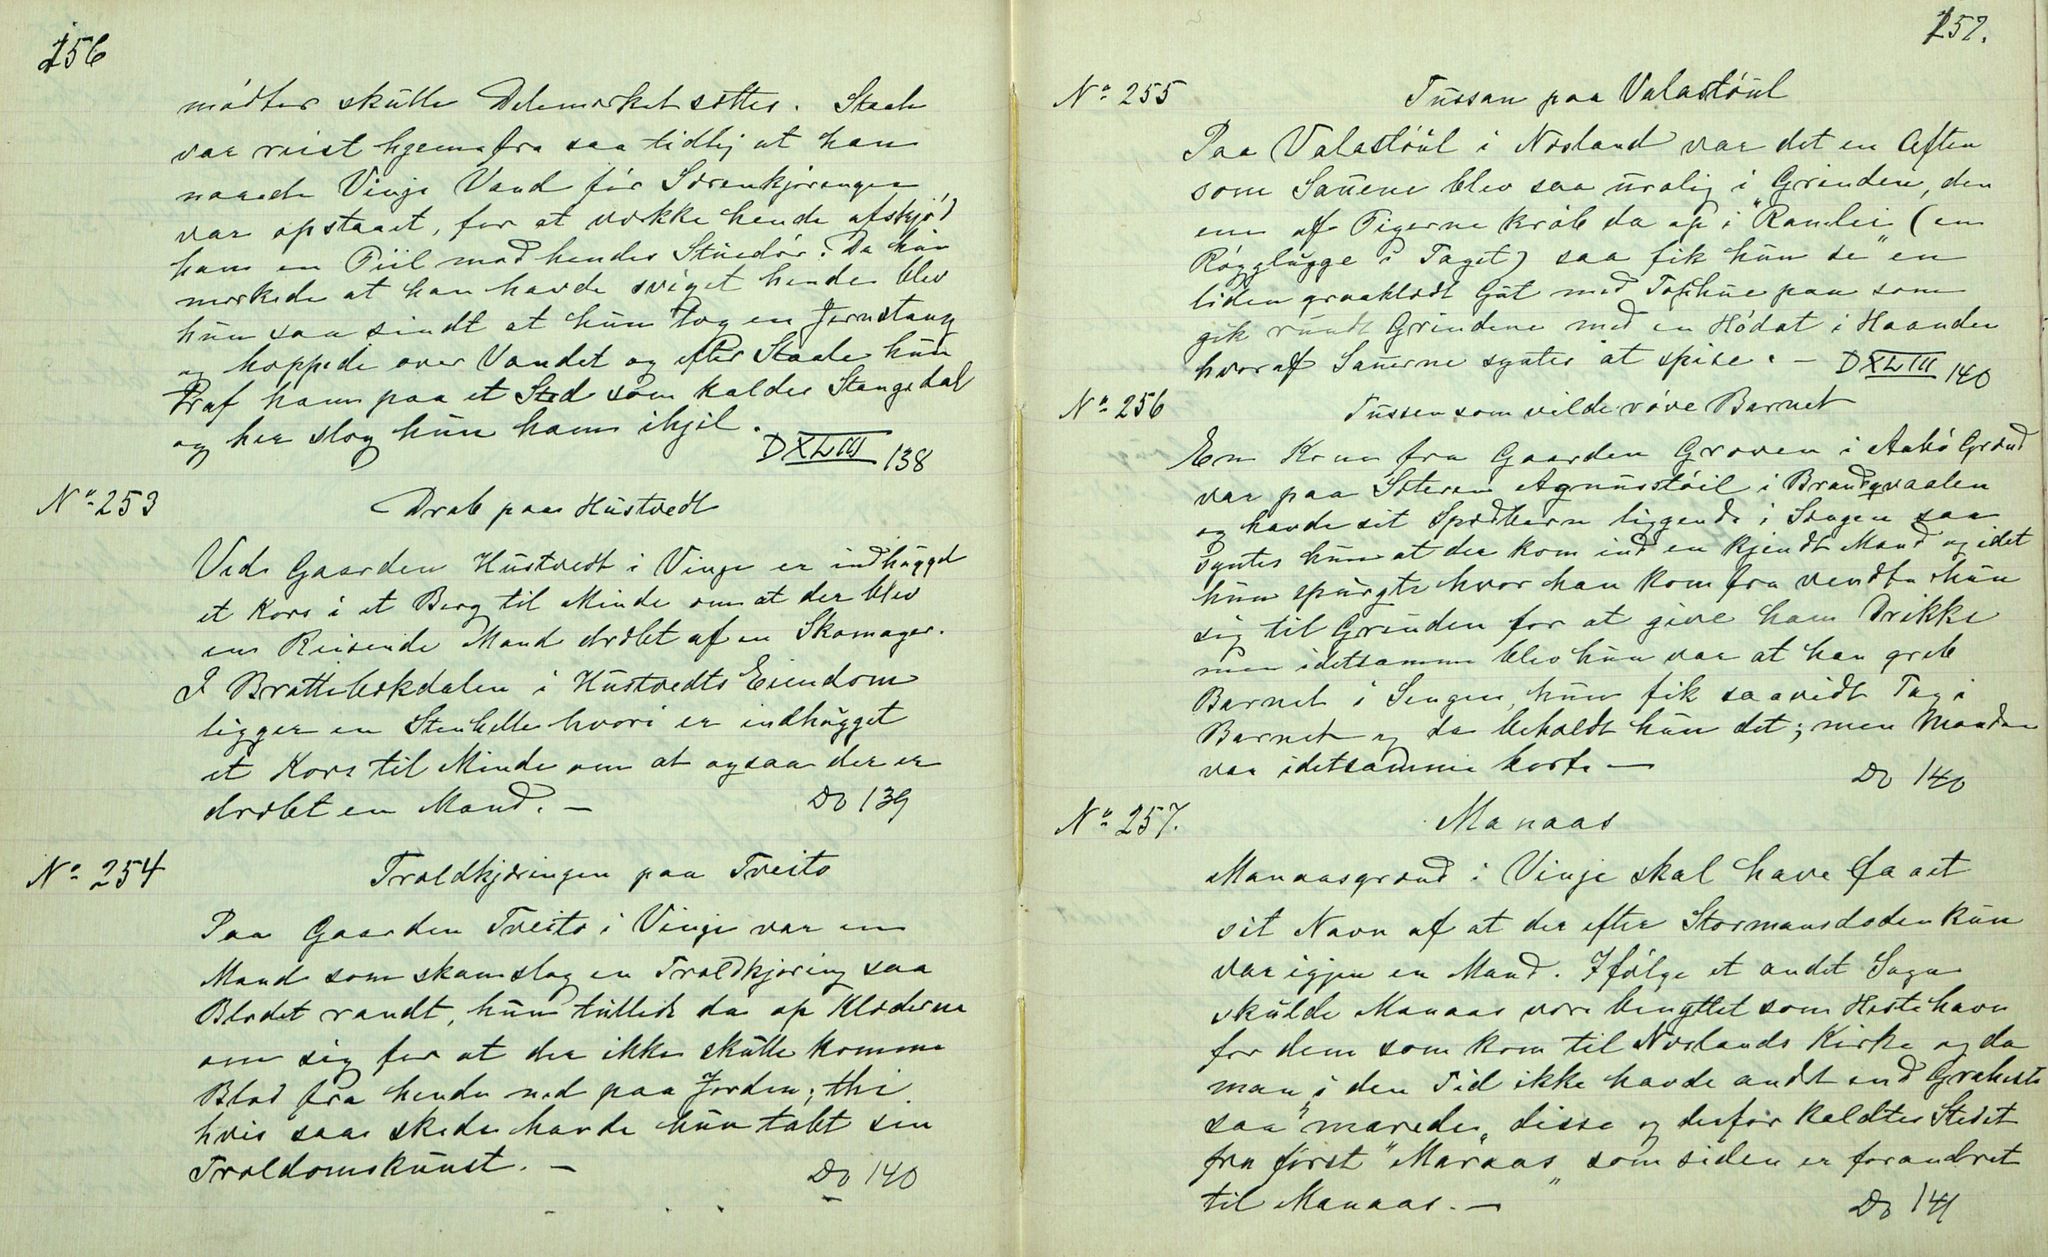 156
mødtes skulle Delemærket sættes. Staale
var reist hjemmefra saa tidlig at han
naaede Vinje Vand før Sørenkjæringen
var opstaaet, for at vække hende afskjød
han en Piil mod hendes Stuedør. Da hun
mærkede at han havde sviget hende blev
hun saa sindt at hun tog en Jernstang
og hoppede over Vandet og efter Staale hun
Traf ham paa et Sted som kaldes Stangsdal
og her slog hun ham ihjel.
DXLIII 138
No 253 Drab paa Hustvedt
Ved Gaarden Hustvedt i Vinje er indhugget
et Kors i et Berg til Minde om at der blev
en Reisende Mand dræbt af en Skomager.
I Brattebækdalen i Hustvedts Eiendom
ligger en Stenhelle hvori er indhugget
et Kors til Minde om at ogsaa der er
dræbt en Mand. — Do 139
No 254 Troldkjæringen paa Tveito
Paa Gaarden Tveito i Vinje var en
Mand som skamslog en Troldkjæring saa
Blodet randt, hun tullede da op Klæderne
om sig for at der ikke skulle komme
Blod fra hende ned paa Jorden; thi
hvis saa skede havde hun tabt sin
Troldomskunst. — Do 140
157.
No 255 Tussan paa Valastøul
Paa Valastøul i Næsland var det en Aften
som Sauene blev saa urolig i Grinden, den
ene af Pigerne krøb da op i "Ranlei (en
Røgglugge i Taget) saa fik hun se" en
liden graaklædt Gut med Tophue paa som
gik rundt Grindene med en Hødot i Haanden
hvoraf Sauerne syntes at spise. — DXLIII 140
No 256 Tussen som vilde røve Barnet
En Kone fra Gaarden Groven i Aabø Grænd
var paa Sæteren Agnusstøil i Brandqvaalen
og havde sit Spædbarn liggende i Sengen saa
Syntes hun at der kom ind en kjendt Mand og idet
hun spurgte hvor han kom fra vendte hun
sig til Gruden for at give ham Drikke
men idetsamme blev hun var at han greb
Barnet i Sengen, hun fik saavidt Tag i
Barnet og da beholdt hun det; men Manden
var idetsamme borte — Do 140
No 257. Manaas
Manaasgrænd i Vinje skal have faaet
sit Navn af at der efter Stormansdøden kun
var igjen en Mand. Ifølge et andet Sagn
skulde Manaas være benyttet som Hestehavn
for dem som kom til Næslands Kirke og da
man i den Tid ikke havde andt end Graheste
saa "marede" disse og derfor kaldtes Stedet
fra først "Maraas" som siden er forandret
til Manaas. — Do 141